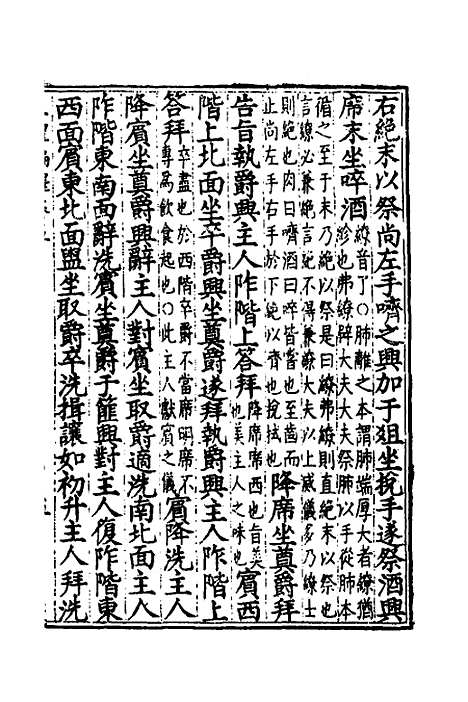 右絶末以祭尚左手嚌之興加于俎坐挩手遂祭酒興
席末坐啐酒繚音了○肺離之本謂肺端厚大者繚猶
紾也弗繚辟大夫大夫祭肺以手從肺本
循之至于末乃絶以祭是曰繚弗繚則直絶末以祭也
言繚必兼絶言絶不得兼繚大夫以上威儀多乃繚士
則絶也肉曰嚌酒曰啐皆嘗也至齒而
止尚左手右手於下絶以齊也挩拭也降席坐奠爵拜
告旨執爵興主人阼階上答拜降席席西也旨美
也美主人之味也賓西
階上北面坐卒爵興坐奠爵遂拜執爵興主人阼階上
答拜卒盡也於西階卒爵不當席明席不
專爲飲食起也○此主人獻賓之儀賓降洗主人
降賓坐奠爵興辭主人對賓坐取爵適洗南北面主人
阼階東南面辭洗賓坐奠爵于篚興對主人復阼階東
西面賓東北面盥坐取爵卒洗揖讓如初升主人拜洗